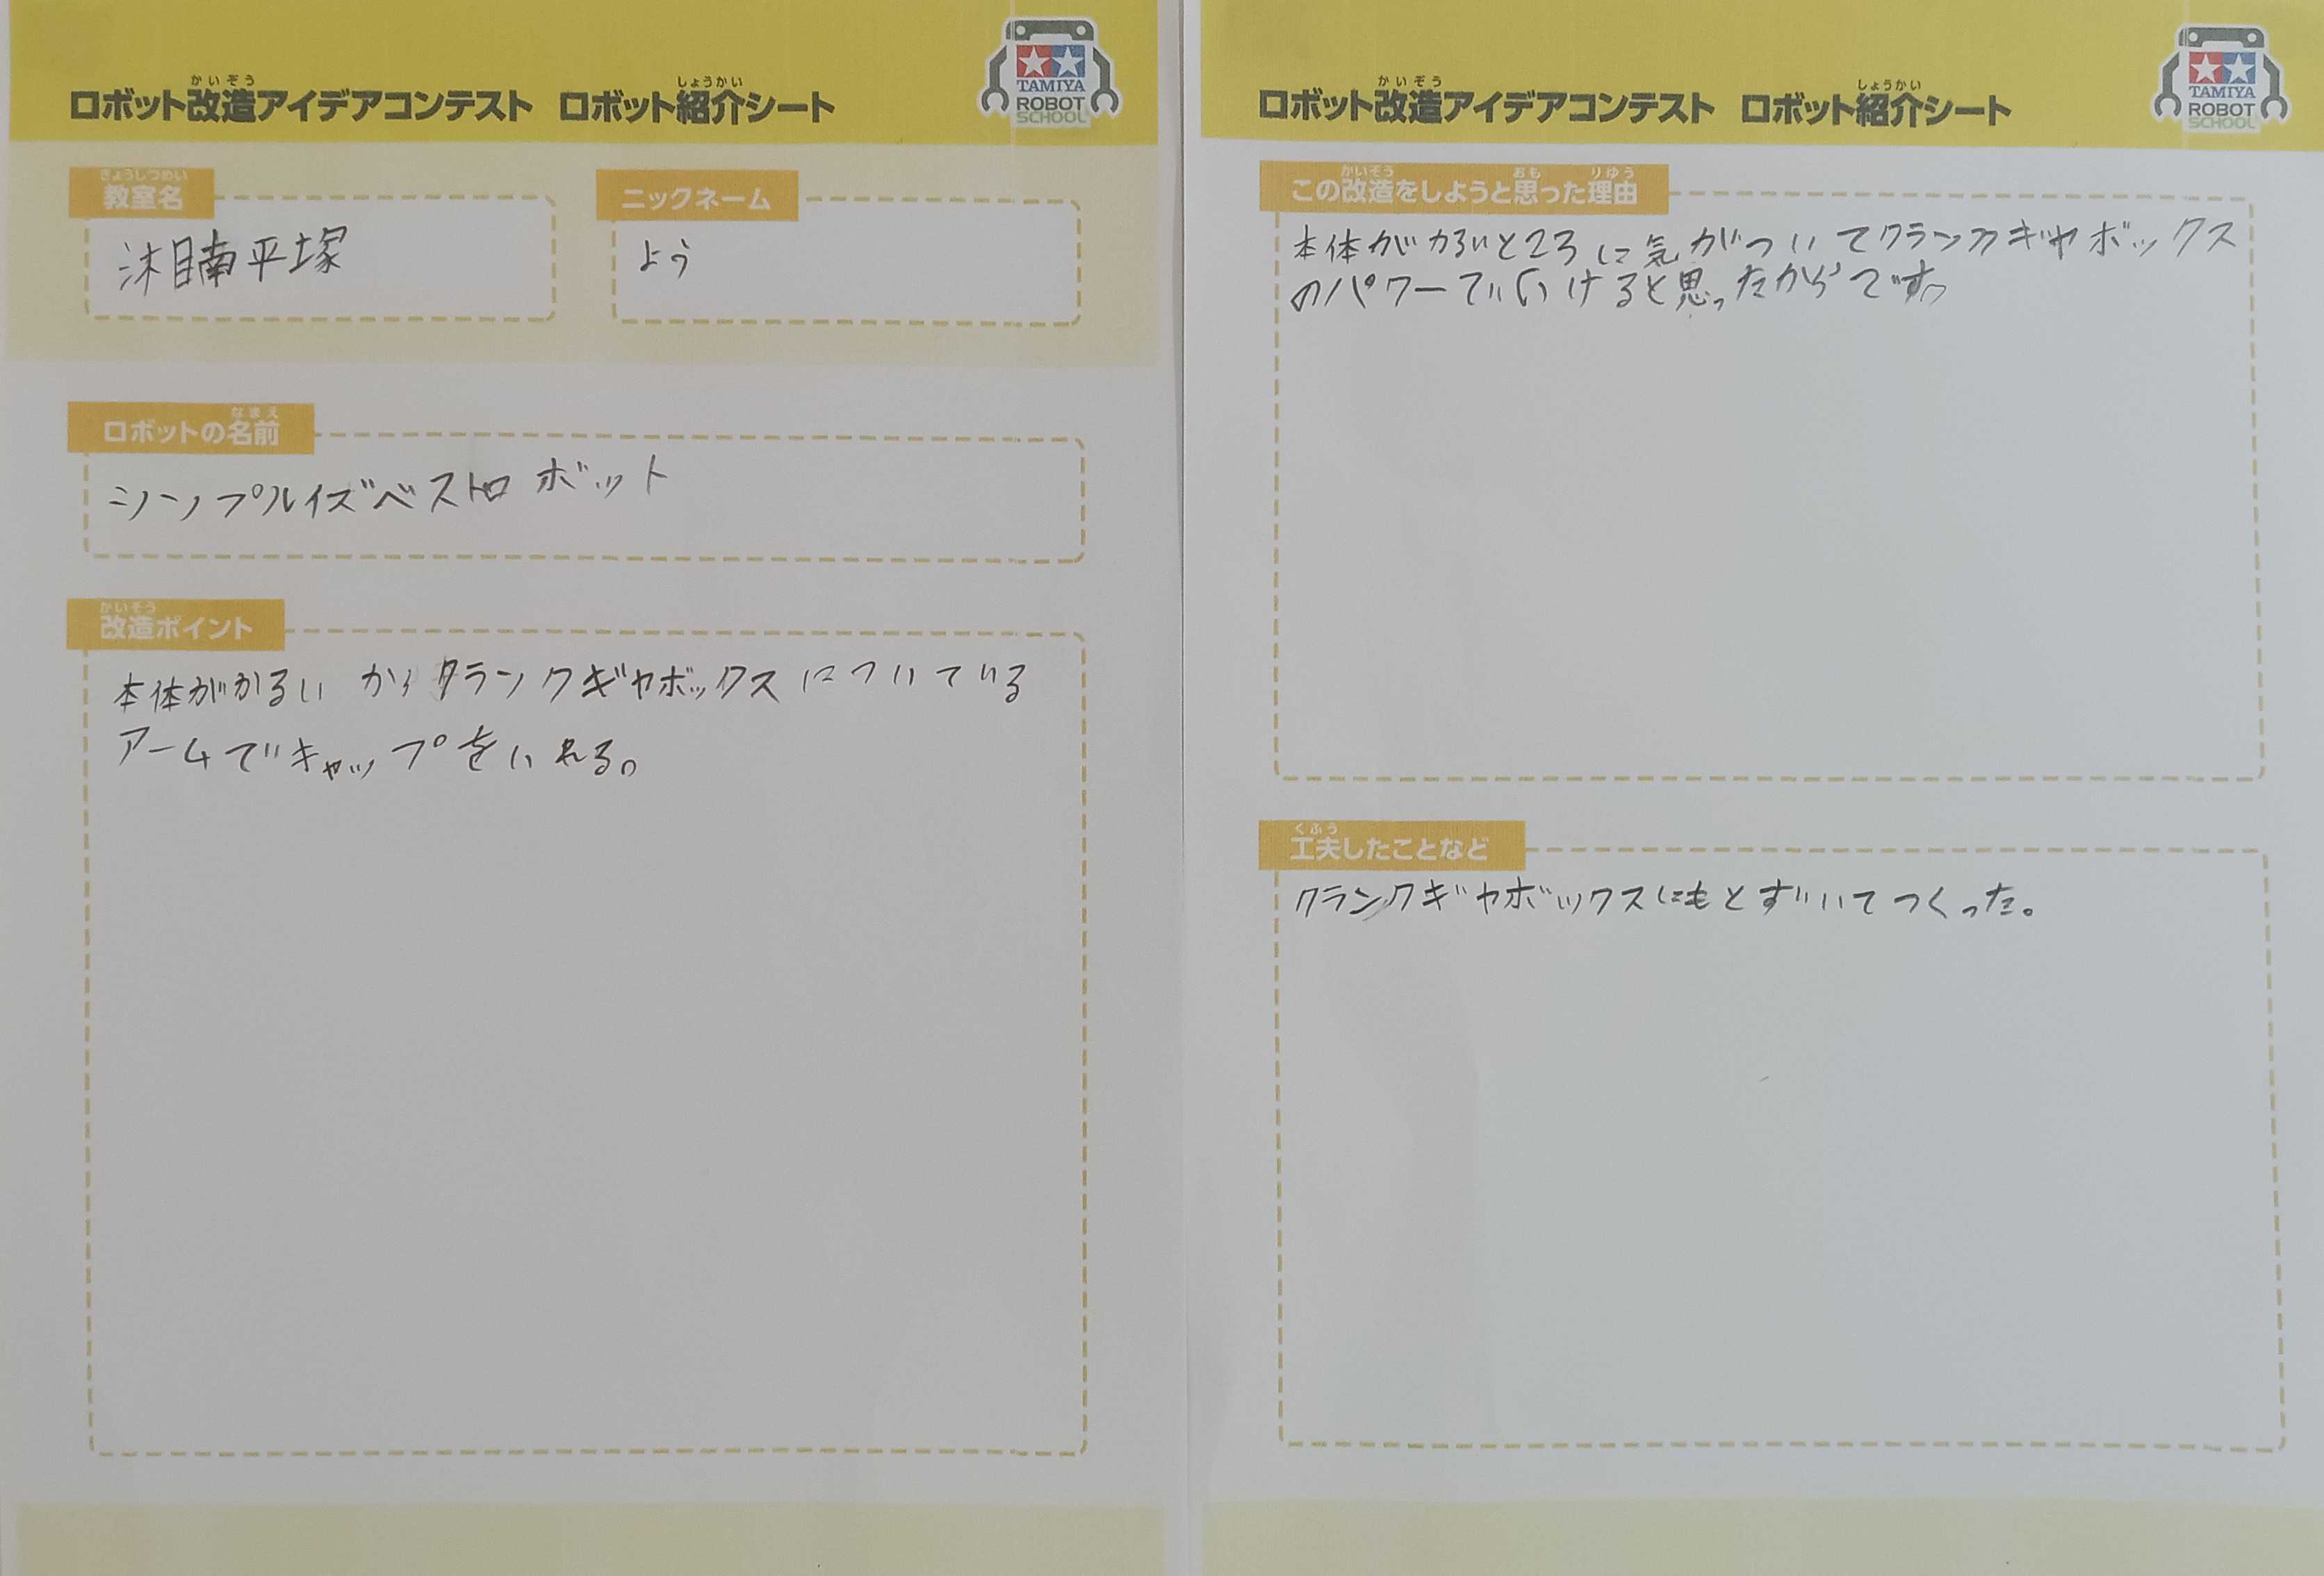 ロボット改造アイデアコンテスト ロボット紹介シート
かいぞう
しょうかい
TAMIYA
ROBOT
SCHOOL
教室名
きょうしつめい
湘南平塚
ニックネーム
よう
ロボットの名前
なまえ
シンプルイズベストロボット
改造ポイント
かいぞう
本体がかるいからクランクギヤボックスについている
アームでキャップをいれる。
ロボット改造アイデアコンテスト ロボット紹介シート
かいぞう
しょうかい
TAMIYA
ROBOT
SCHOOL
この改造をしようと思った理由
かいぞう
おも
りゆう
本体がかるいところに気がついてクランクギヤボックス
のパワーでいけると思ったからです。
工夫したことなど
くふう
クランクギヤボックスにもとずいてつくった。